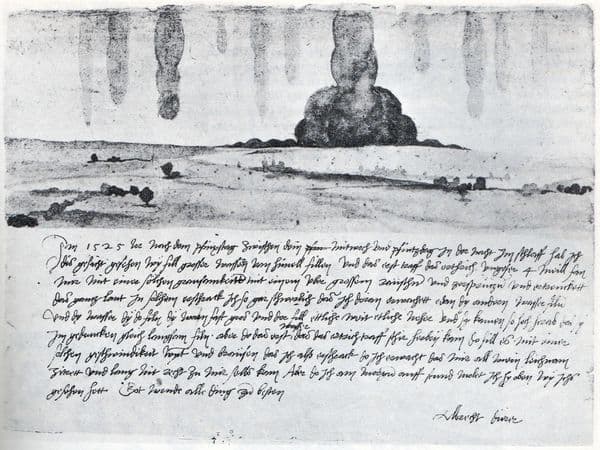 Im 1525 Jor nach dem pfinxstag zwischen dem Mitwoch und pfintzdag in der nacht im schlaff hab ich
dis gesicht gesehen wy fill grosser wassern vom himell fillen Und das erst traff das erthrich ungefer 4 meill fan
mir mit einer solchen grausamkeitt mit einem uber grossem raüschn und zersprützn und ertrenckett
das gannz lant In solchem erschrack ich so gar schwerlich das ich doran erwachett edan dy andern wasser filn
und dy wasser dy do filn dy warn fast gros und der fill ettliche weit ettliche neher und sy kamen so hoch herab das sy
im gedancken gleich langsam filn. aber do das erst wasser das das ertrich traff schir herbey kam do fill es mit einer
solchen geschwindikeit wynt und braüsen das ich also erschrack do ich erwacht das mir all mein leichnam
zitrett und lang nit recht zu mir selbs kam Aber do ich am morgn auff stund molet ich hy oben wy ichs
gesehen hett Got wende alle ding zu besten
Albrecht dürer